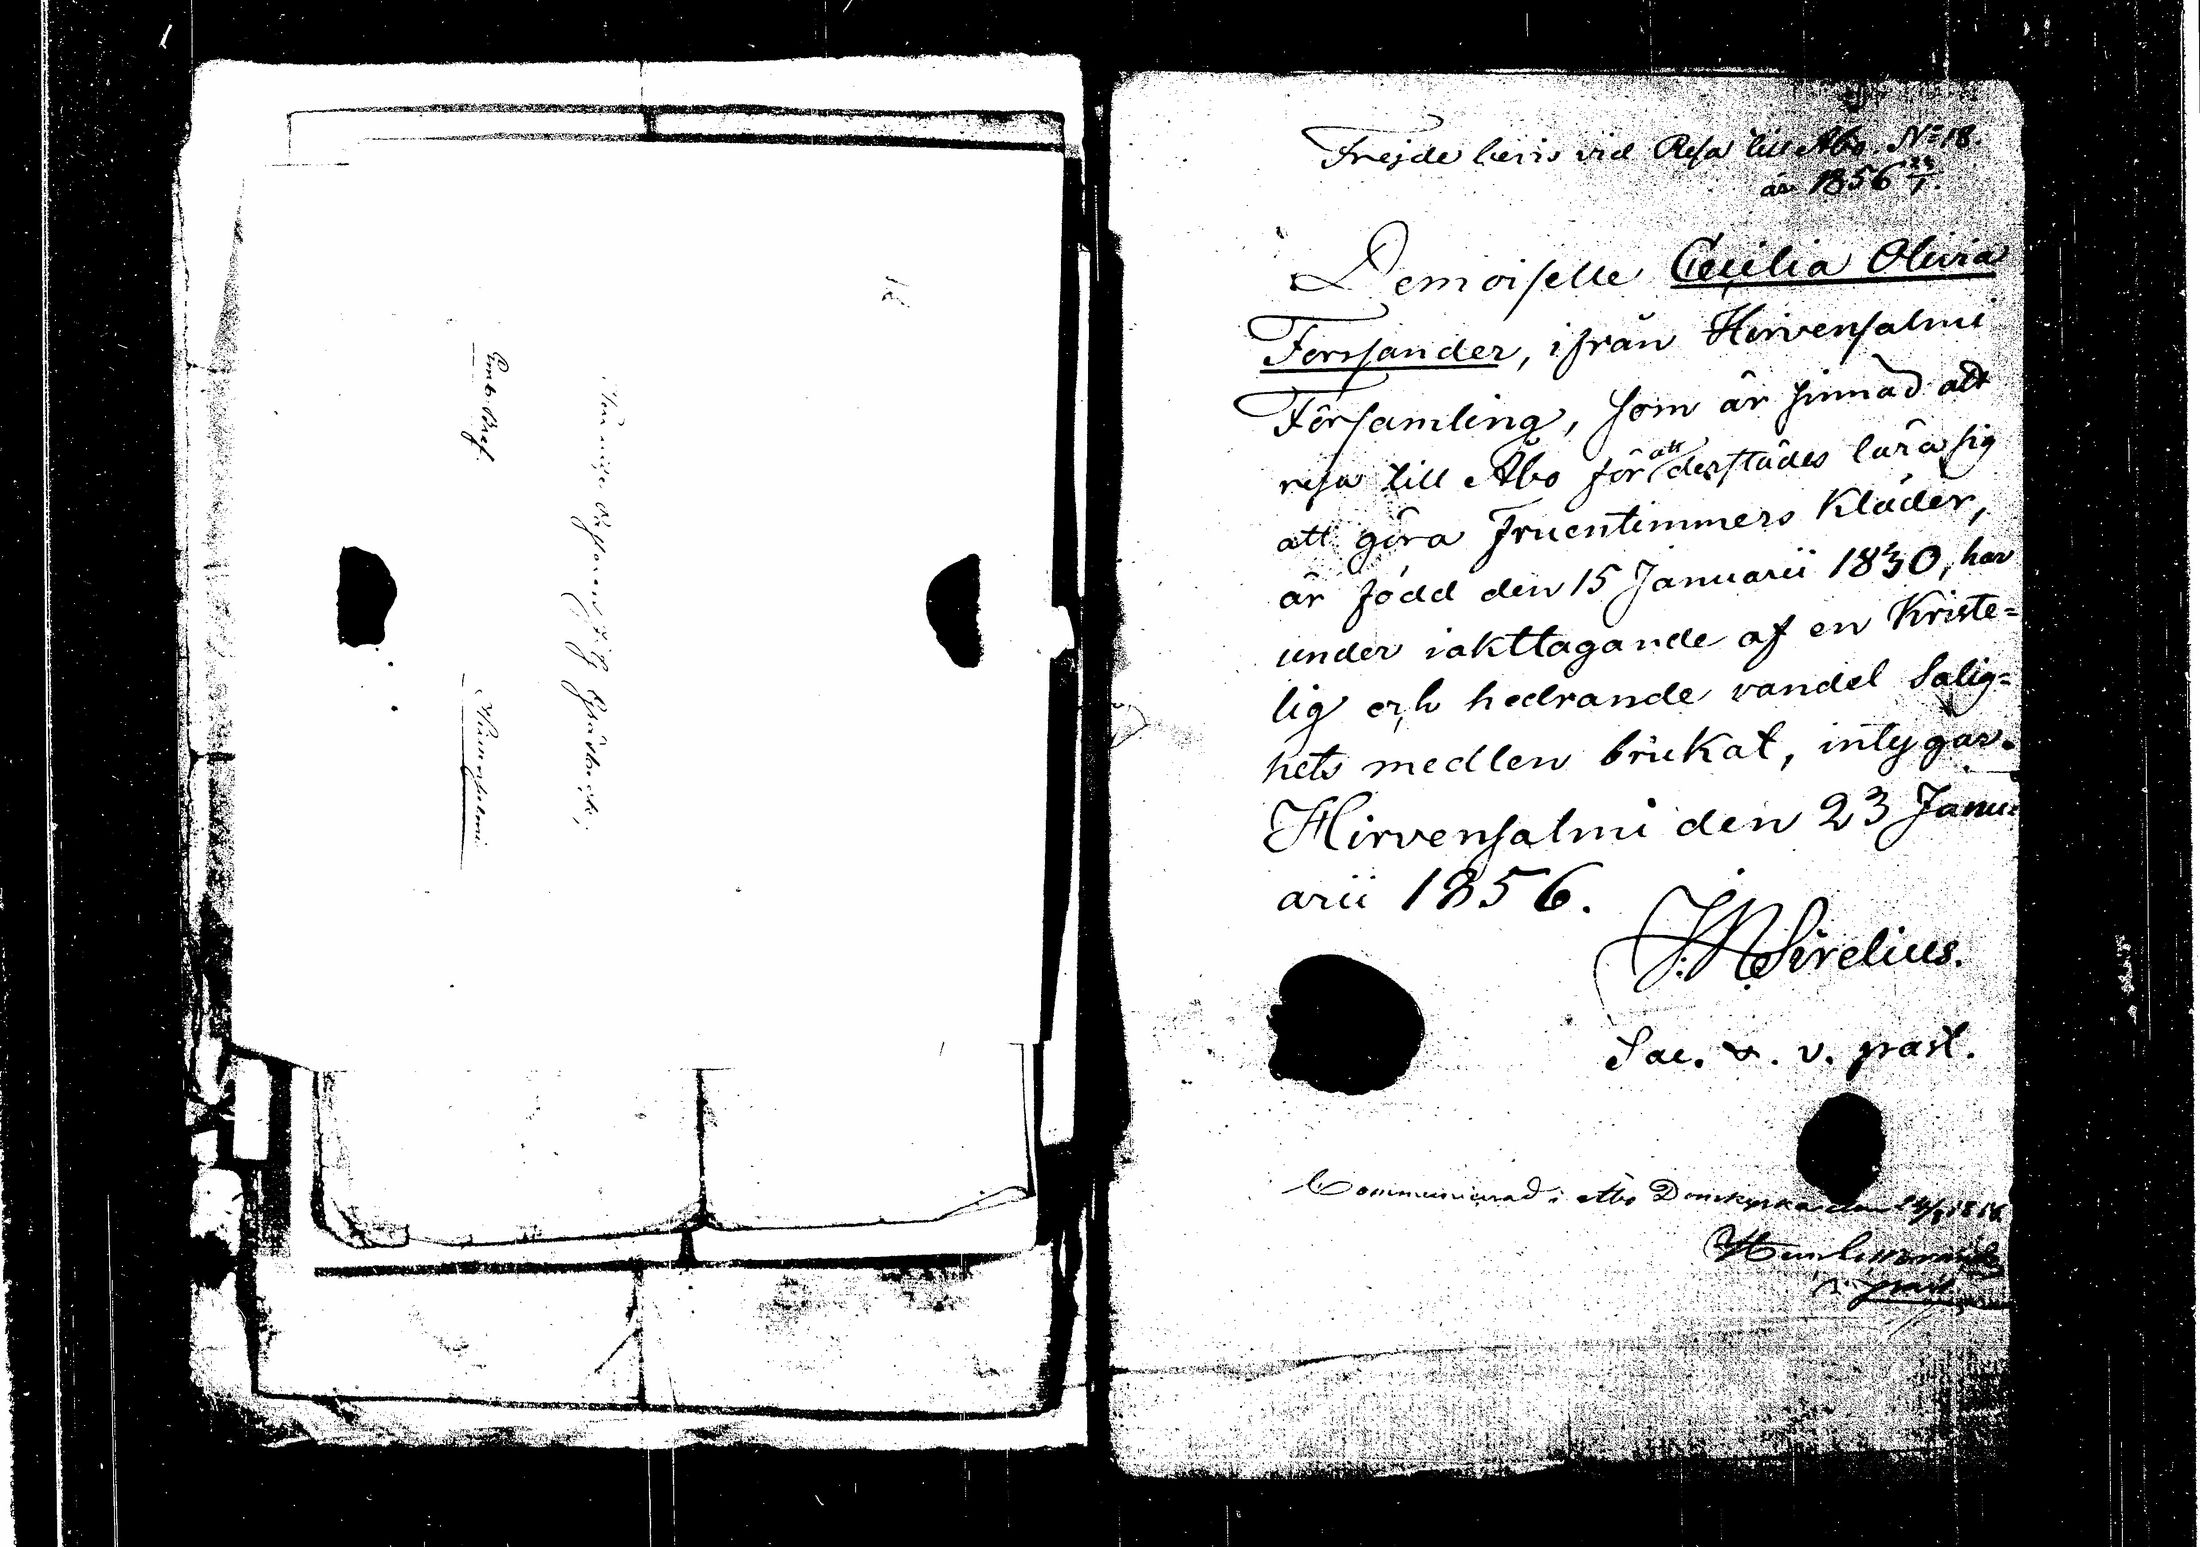 Embts Bref.
Hirvensalmi
Frejde bevis vid Resa till Åbo. No 18.
år 1856 23/1.
Demoiselle Cecilia Olivia
Forssander, ifrån Hirvensalmi
Församling, som är sinnad att
resa till Åbo för att derstädes lära sig
att göra Fruentimmers Kläder,
är född den 15 Januarii 1830, har
under iakttagande af en Kriste=
lig och hedrande vandel Salig=
hets medlen brukat, intygar.
Hirvensalmi den 23 Janu=
arii 1856.
J. N. Sirelius.
Sac. & v. past.
Communicerad i Åbo Domkyrka den